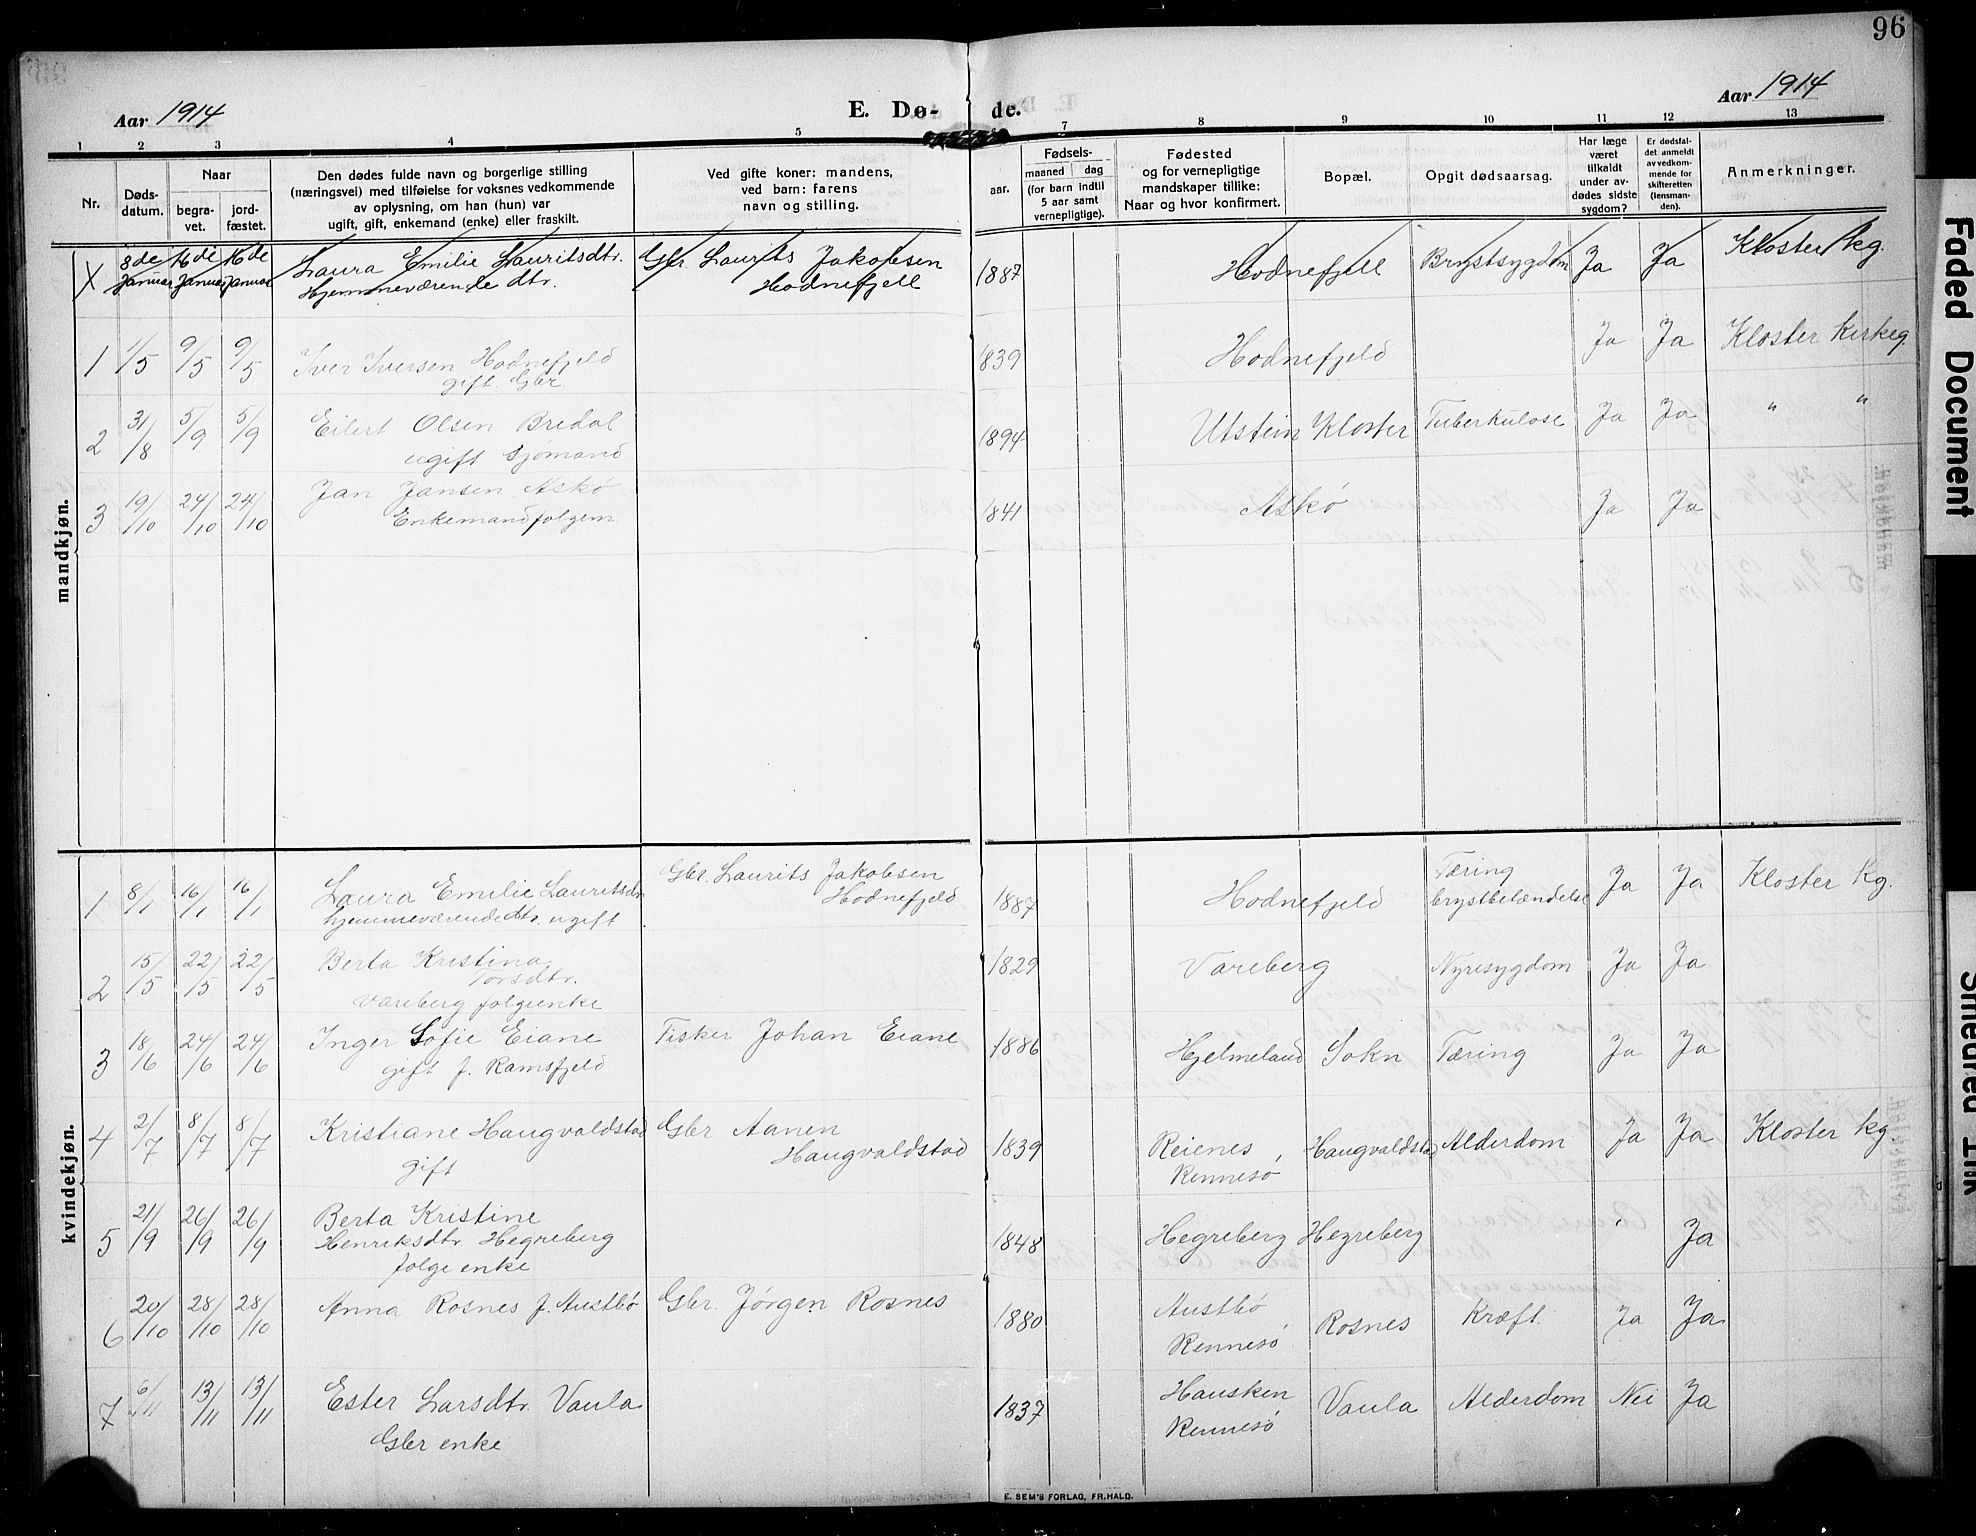 96
Aar 1914
E. Dø- de.
Aar 1914
1 2 3 4 5 7 8 9 10 11 12 13
Nr.
Døds-
datum.
Naar
begra-
vet.
jord-
fæstet.
Den dødes fulde navn og borgerlige stilling
(næringsvei) med tilføielse for voksnes vedkommende
av oplysning, om han (hun) var
ugift, gift, enkemand (enke) eller fraskilt.
Ved gifte koner: mandens,
ved barn: farens
navn og stilling.
aar.
Fødsels-
maaned dag
(for barn indtil
5 aar samt
vernepligtige).
Fødested
og for vernepligtige
mandskaper tillike:
Naar og hvor konfirmert.
Bopæl.
Opgit dødsaarsag.
Har læge
været
tilkaldt
under av-
dødes sidste
sygdom?
Er dødsfal-
det anmeldt
av vedkom-
mende for
skifteretten
(lensman-
den).
Anmerkninger.
mandkjøn.
8de Januar 16de Januar 16de Januar Laura Emilie Lauritsdtr. Gbr. Laurits Jakobsen 1887 Hodnefjell Brystsygdom Ja Ja Kloster kg.
Hjemmeværende dtr. Hodnefjell
1 1/5 9/5 9/5 Iver Iversen Hodnefjeld 1839 Hodnefjeld Ja Ja Kloster Kirkeg.
gift Gbr
2 31/8 5/9 5/9 Eilert Olsen Bredal 1894 Utstein Kloster Tuberkulose Ja Ja " "
ugift Sjømand
3 19/10 24/10 24/10 Jan Jansen Askø 1841 Askø Ja Ja
Enkemand folgem
kvindekjøn.
1 8/1 16/1 16/1 Laura Emilie Lauritsdtr Gbr. Laurits Jakobsen 1887 Hodnefjeld Tæring Ja Ja Kloster Kg.
hjemmeværende dtr. ugift Hodnefjeld brystbetændelse
2 15/5 22/5 22/5 Berta Kristina 1829 Vareberg Nyresygdom Ja Ja
Torsdtr.
Vareberg folgeenke
3 18/6 24/6 24/6 Inger Sofie Eiane Tisker Johan Eiane 1886 Hjelmeland Sokn Tæring Ja Ja
gift f. Ramsfjeld
4 2/7 8/7 8/7 Kristiane Haugvaldstad Gbr Aanen 1839 Reienes Haugvaldstad Alderdom Ja Ja Kloster kg.
gift Haugvaldstad Rennesø
5 21/9 26/9 26/9 Berta Kristine 1848 Hegreberg Hegreberg Ja
Henriksdtr. Hegreberg
folge enke
6 20/10 28/10 28/10 Anna Rosnes f. Austbø Gbr. Jørgen Rosnes 1880 Austbø Rosnes Kræft. Ja Ja
Rennesø
7 6/11 13/11 13/11 Ester Larsdtr. Vaula 1837 Hausken Vaula Alderdom Nei Ja
Gbr enke Rennesø
E. SEM'S FORLAG, FR.HALD.
Faded Document
Smeared Ink